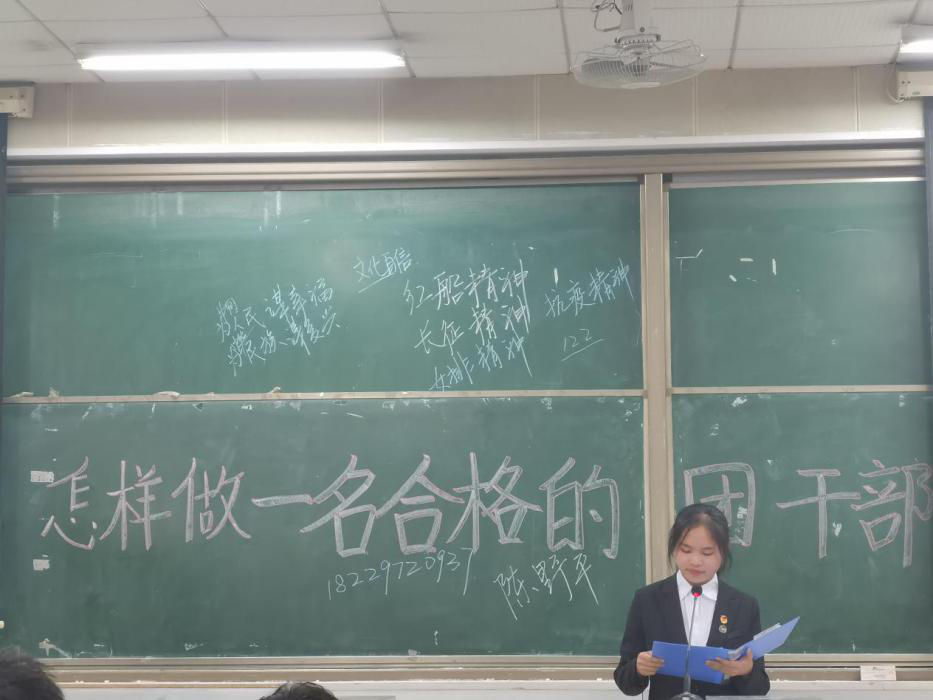 文化自信
为人民谋幸福
为民族谋复兴
红船精神
长征精神
女排精神
抗疫精神
122
怎样做一名合格的团干部
18229720937
陈野平